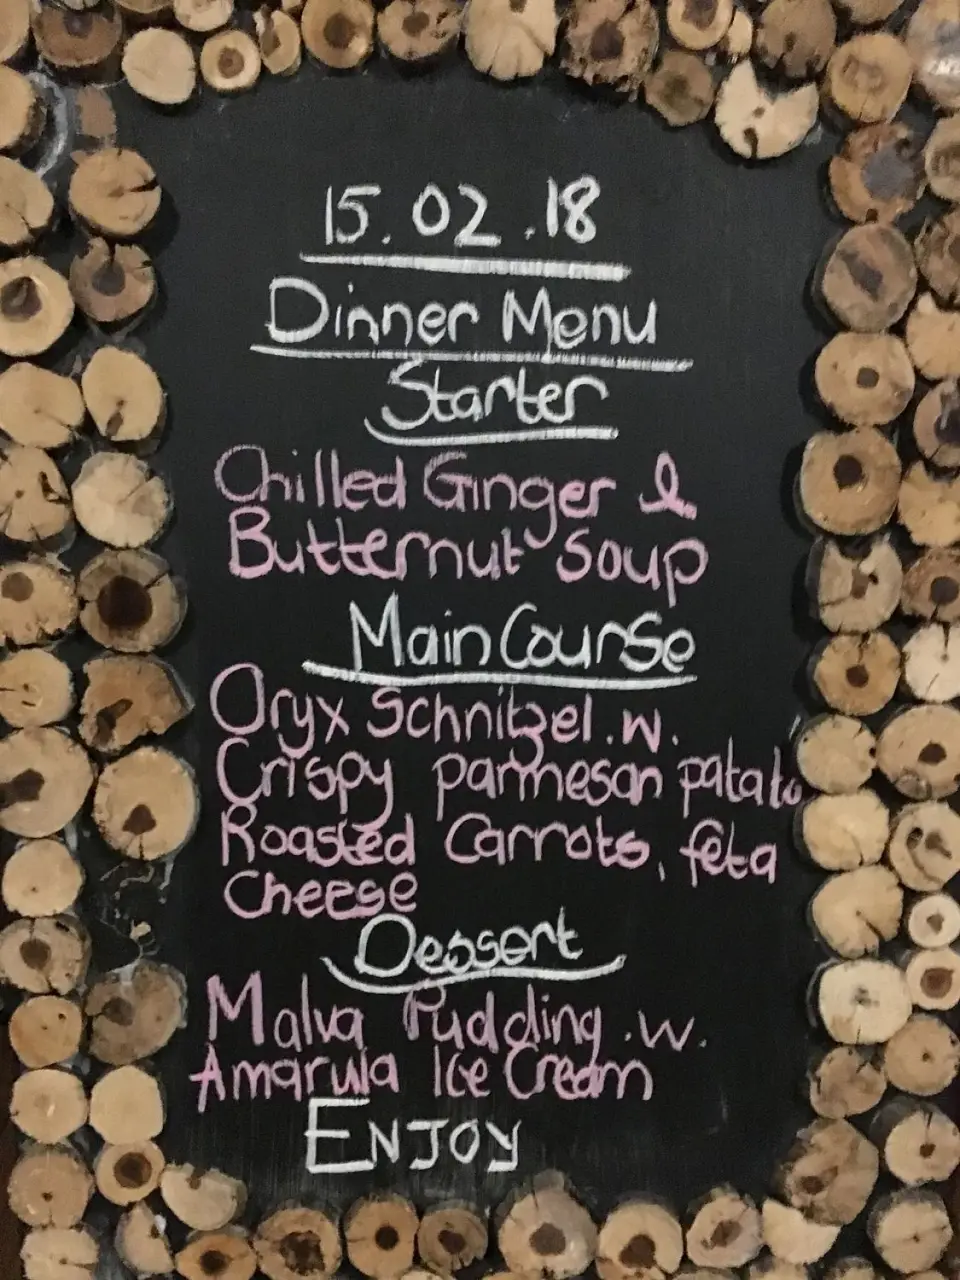 15.02.18
Dinner Menu
Starter
Chilled Ginger &
Butternut Soup
Main Course
Oryx Schnitzel .w.
Crispy parmesan patato
Roasted Carrots, feta
Cheese
Dessert
Malva Pudding .w.
Amarula Ice Cream
ENJOY